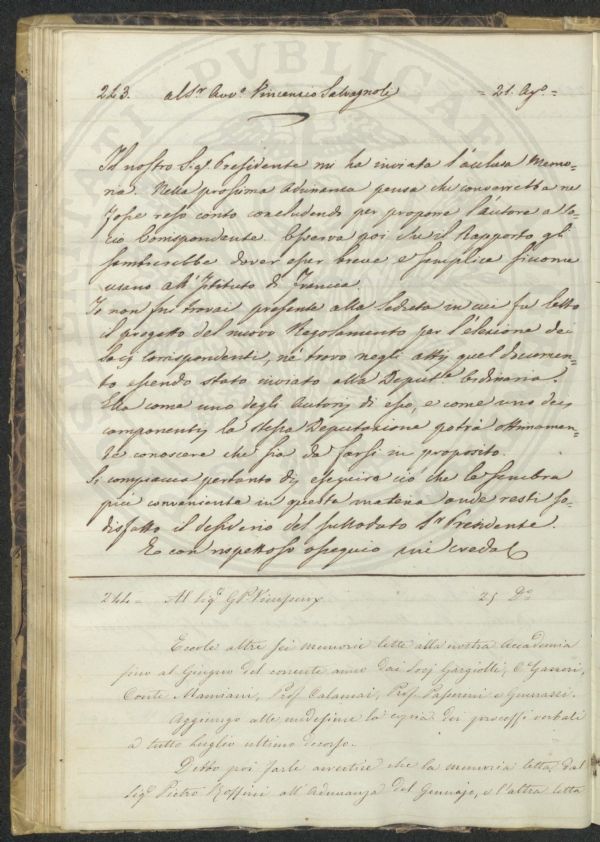 243. al Sr. Avvo. Vincenzo Salvagnoli = 21. Ago. =
Il nostro Sig. Presidente mi ha inviata l'acclusa Memo-
ria. Nella prossima adunanza pensa che converrebbe ne
fosse reso conto concludendo per proporre l'autore a So-
cio Corrispondente. Osserva poi che il Rapporto gli
sembrerebbe dover esser breve e semplice siccome
usano all'Istituto di Francia.
Io non fui trovai presente alla Seduta in cui fu letto
il progetto del nuovo Regolamento per l'elezione dei
Socj Corrispondenti, nè trovo negli atti quel documen-
to essendo stato inviato alla Deputne. Ordinaria.
Ella come uno degli Autori di esso, e come uno dei
componenti la stessa Deputazione potrà ottimamen-
te conoscere che sia da farsi in proposito.
Si compiaccia pertanto di eseguire ciò che le sembra
più conveniente in questa materia onde resti so-
disfatto il desiderio del sullodato Sr. Presidente.
E con rispettoso ossequio mi creda
244 = Al Sigr. GP. Vieusseux 25 Do.
Eccole altre sei memorie lette alla nostra Accademia
fino al Giugno del corrente anno dai Socj Gargiolli, Ce. Gazzeri,
Conte Mamiani, Prof. Calamai, Prof. Passerini e Guerrazzi.
Aggiungo alle medesime la copia dei processi verbali
a tutto Luglio ultimo decorso.
Debbo poi farle avvertire che la memoria letta dal
Sigr. Pietro Rossini all'Adunanza del Gennajo, e l'altra letta